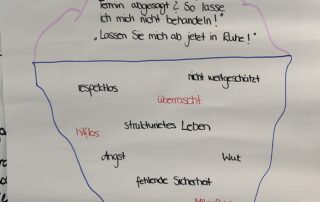 Termin abgesagt? So lasse
ich mich nicht behandeln!"
„Lassen Sie mich ab jetzt in Ruhe!"
nicht wertgeschätzt
respektlos
überrascht
strukturietes Leben
hilflos
Angst
Wut
fehlende Sicherheit